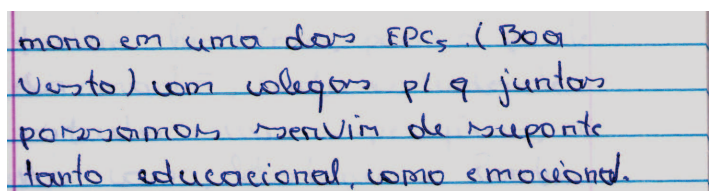 moro em uma das EPCs. (Boa
Vista) com colegas p/ q juntas
possamos servir de suporte
tanto educacional, como emocional.